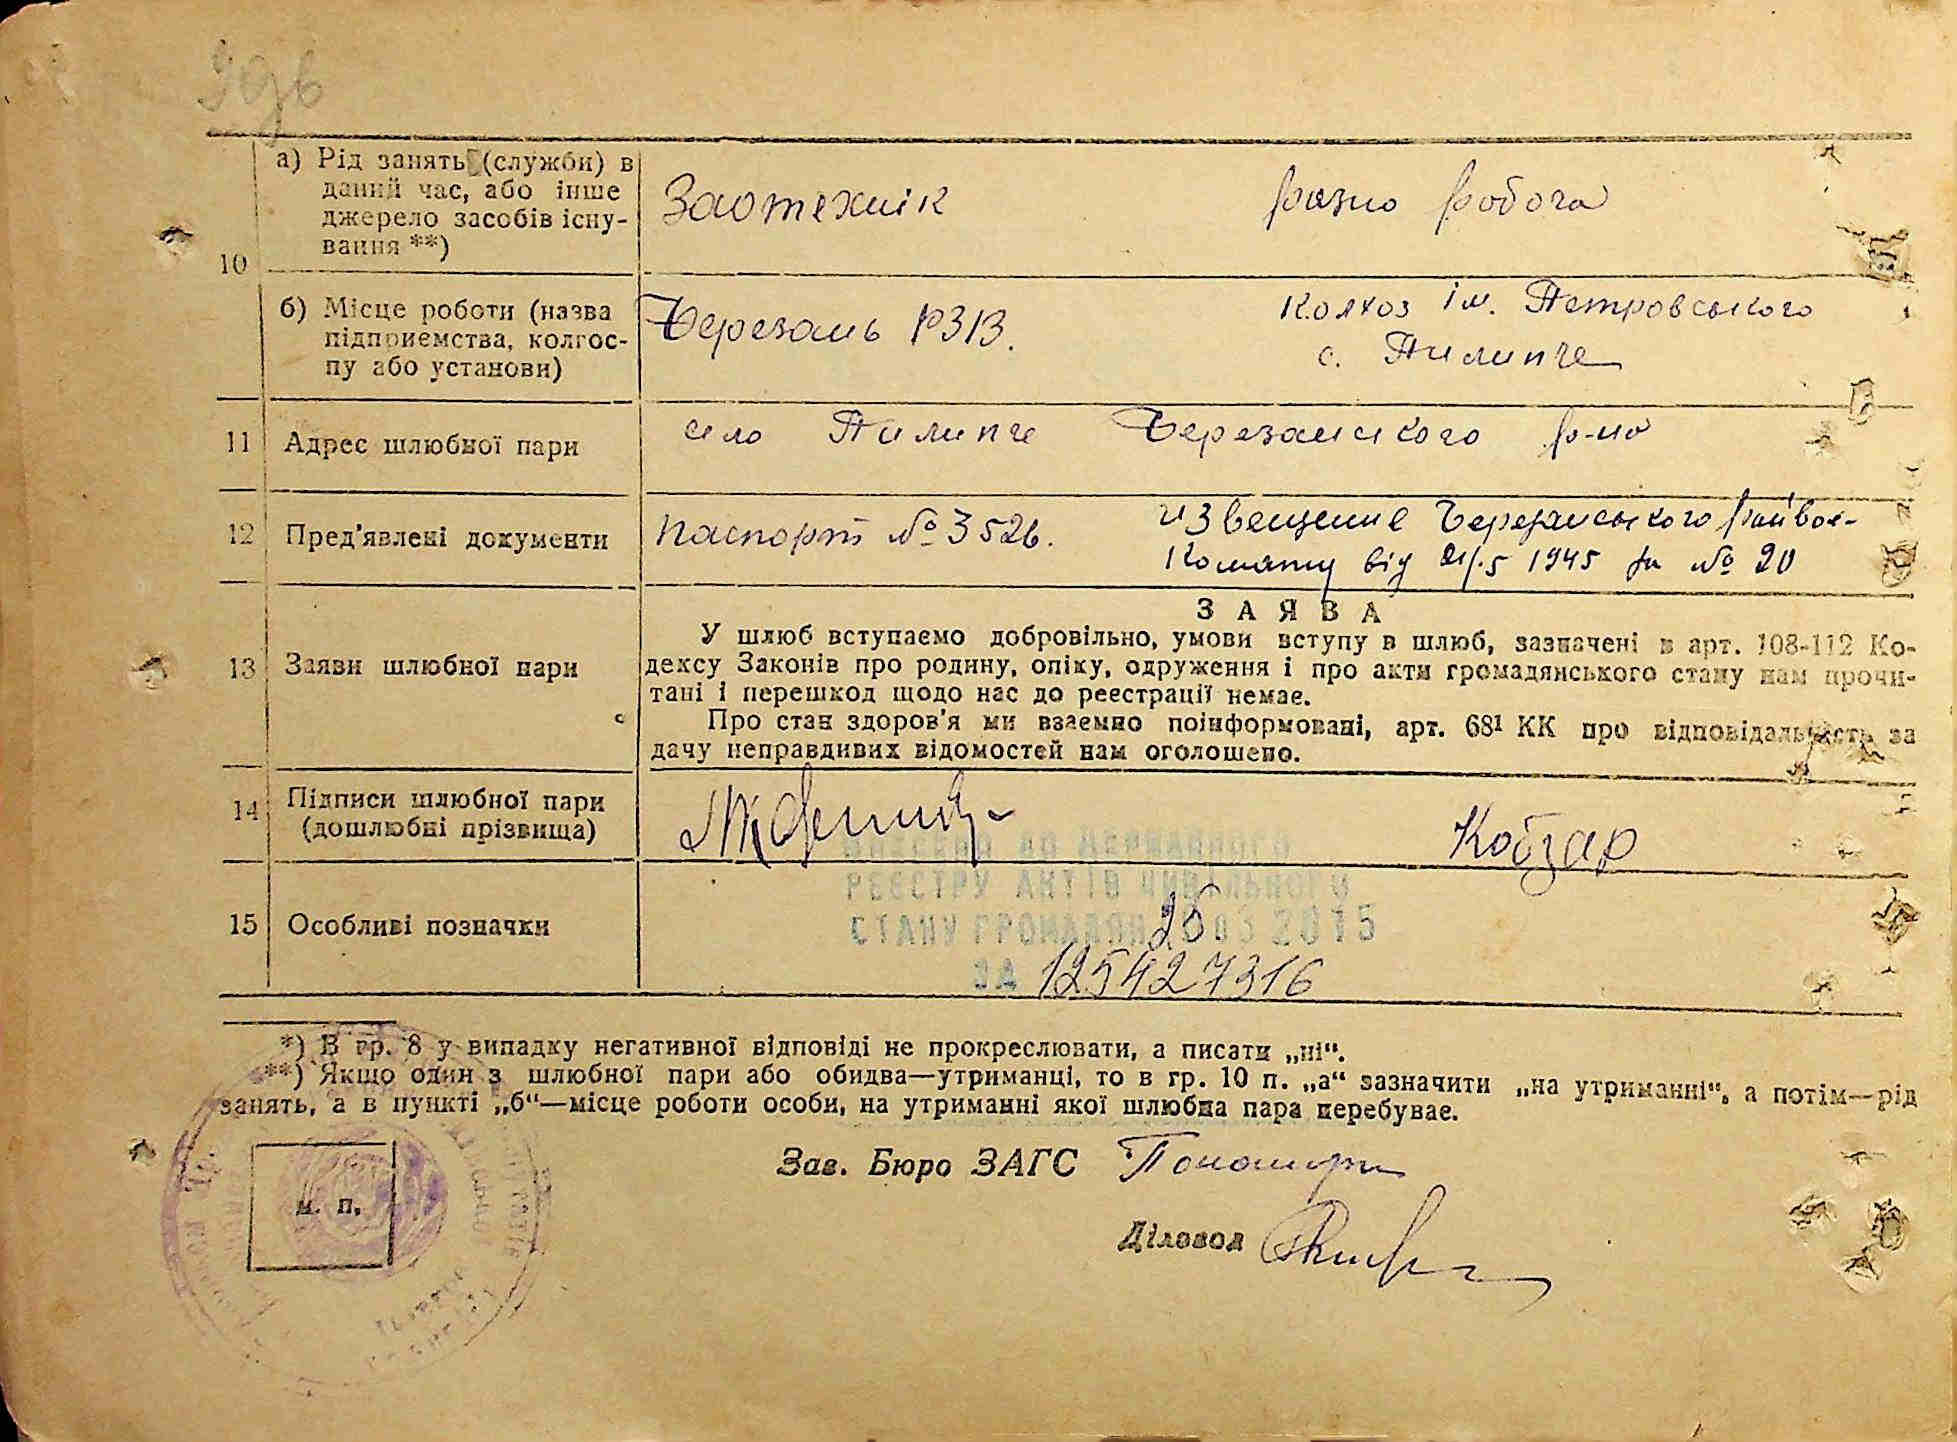 10
а) Рід занять (служби) в
даний час, або інше
джерело засобів існу-
вання **)
Заотехнік
разно робоча
б) Місце роботи (назва
підприемства, колгос-
пу або установи)
Березань РЗВ.
Колхоз ім. Петровського
с. Пилипче
11
Адрес шлюбної пари
село Пилипче Березанського р-на
12
Пред'явлені документи
Паспорт № 3526.
извещение Березанського райвоен-
комату від 21/.5 1945 за № 20
13
Заяви шлюбної пари
ЗАЯВА
У шлюб вступаемо добровільно, умови вступу в шлюб, зазначені в арт. 108-112 Ко-
дексу Законів про родину, опіку, одруження і про акти громадянського стану нам прочи-
тані і перешкод щодо нас до реестрації немае.
Про стан здоров'я ми взаемно поінформовані, арт. 68¹ КК про відповідальність за
дачу неправдивих відомостей нам оголошено.
14
Підписи шлюбної пари
(дошлюбні прізвища)
Кобзар
15
Особливі позначки
ВНЕСЕНО ДО ДЕРЖАВНОГО
РЕЄСТРУ АКТІВ ЦИВІЛЬНОГО
СТАНУ ГРОМАДЯН 26 03 2015
ЗА 125427316
*) В гр. 8 у випадку негативної відповіді не прокреслювати, а писати „ні“.
**) Якщо один з шлюбної пари або обидва—утриманці, то в гр. 10 п. „а“ зазначити „на утриманні“, а потім—рід
занять, а в пункті „б“—місце роботи особи, на утриманні якої шлюбна пара перебувае.
Зав. Бюро ЗАГС
м. п.
Діловод